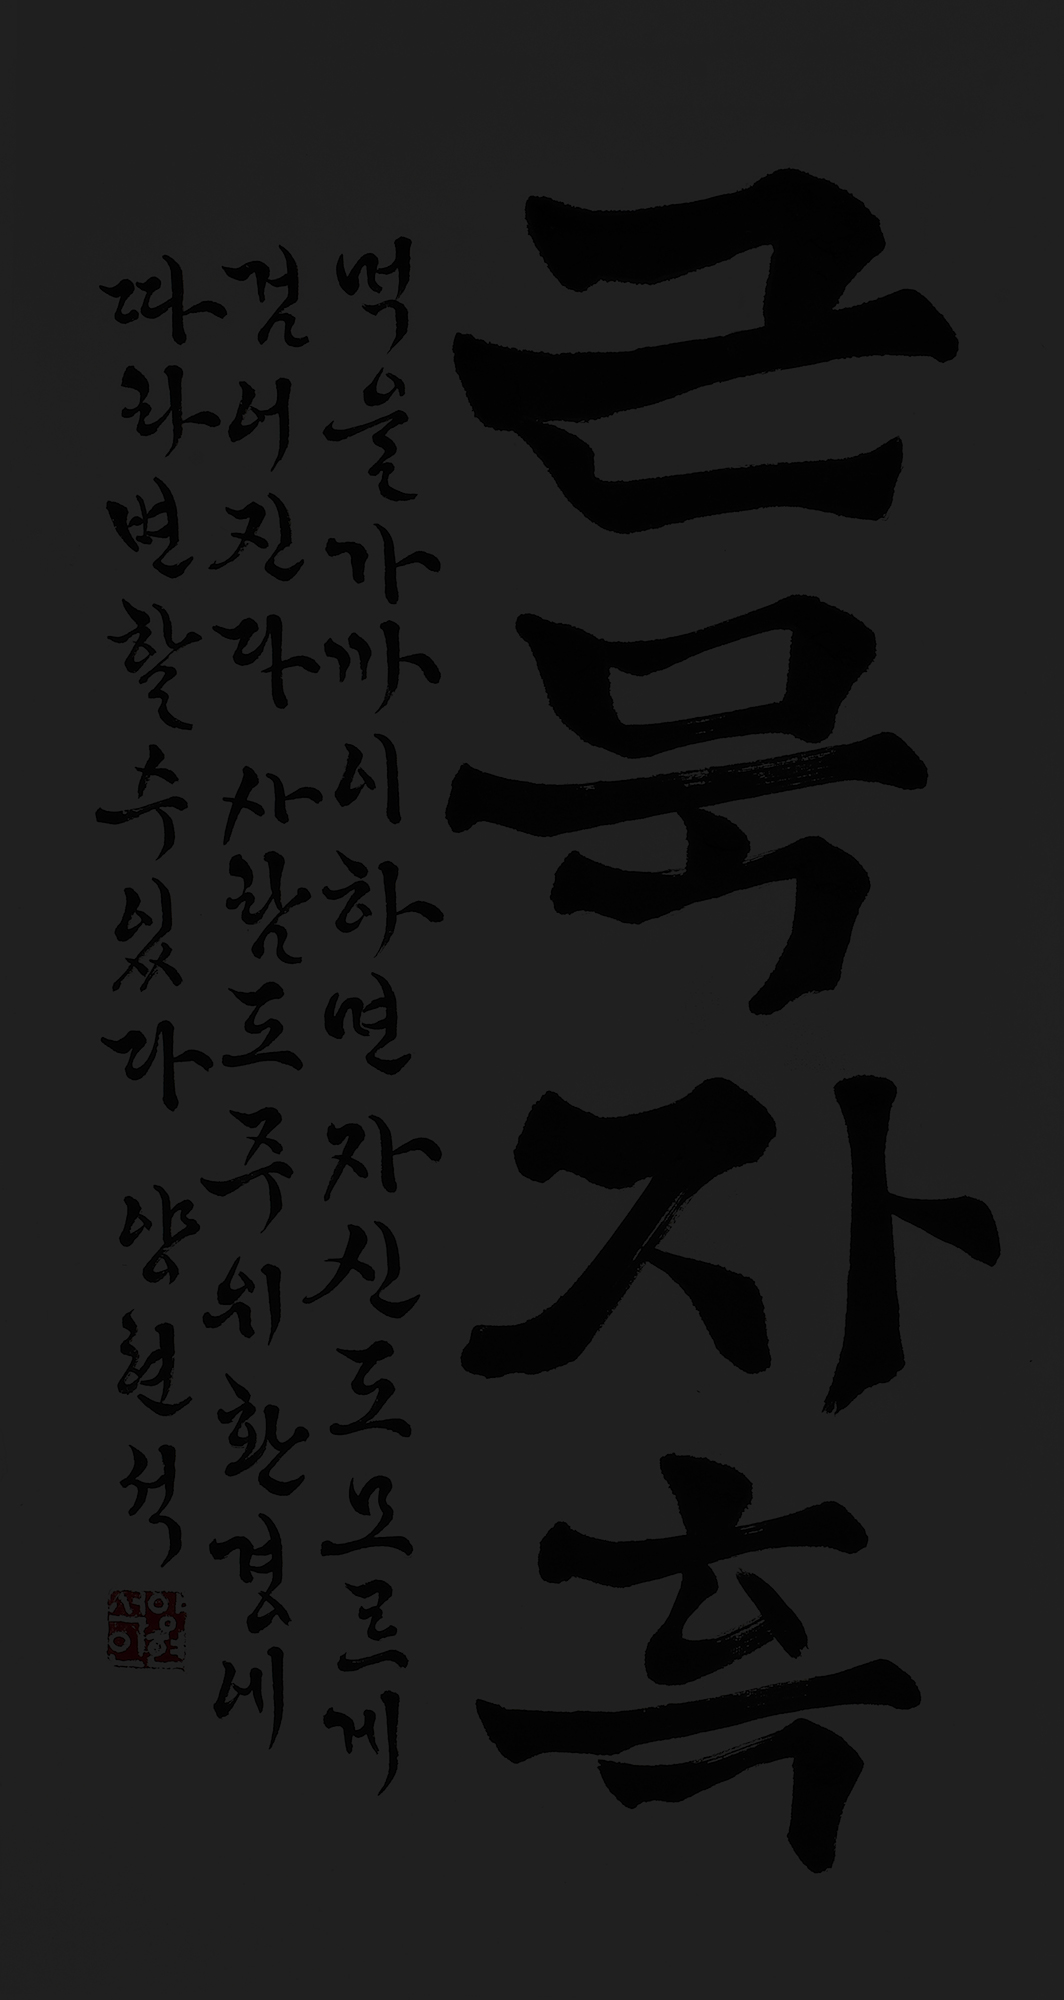 근묵자흑
먹을 가까이하면 자신도 모르게
검어진다 사람도 주위 환경에
따라 변할 수 있다 양현석